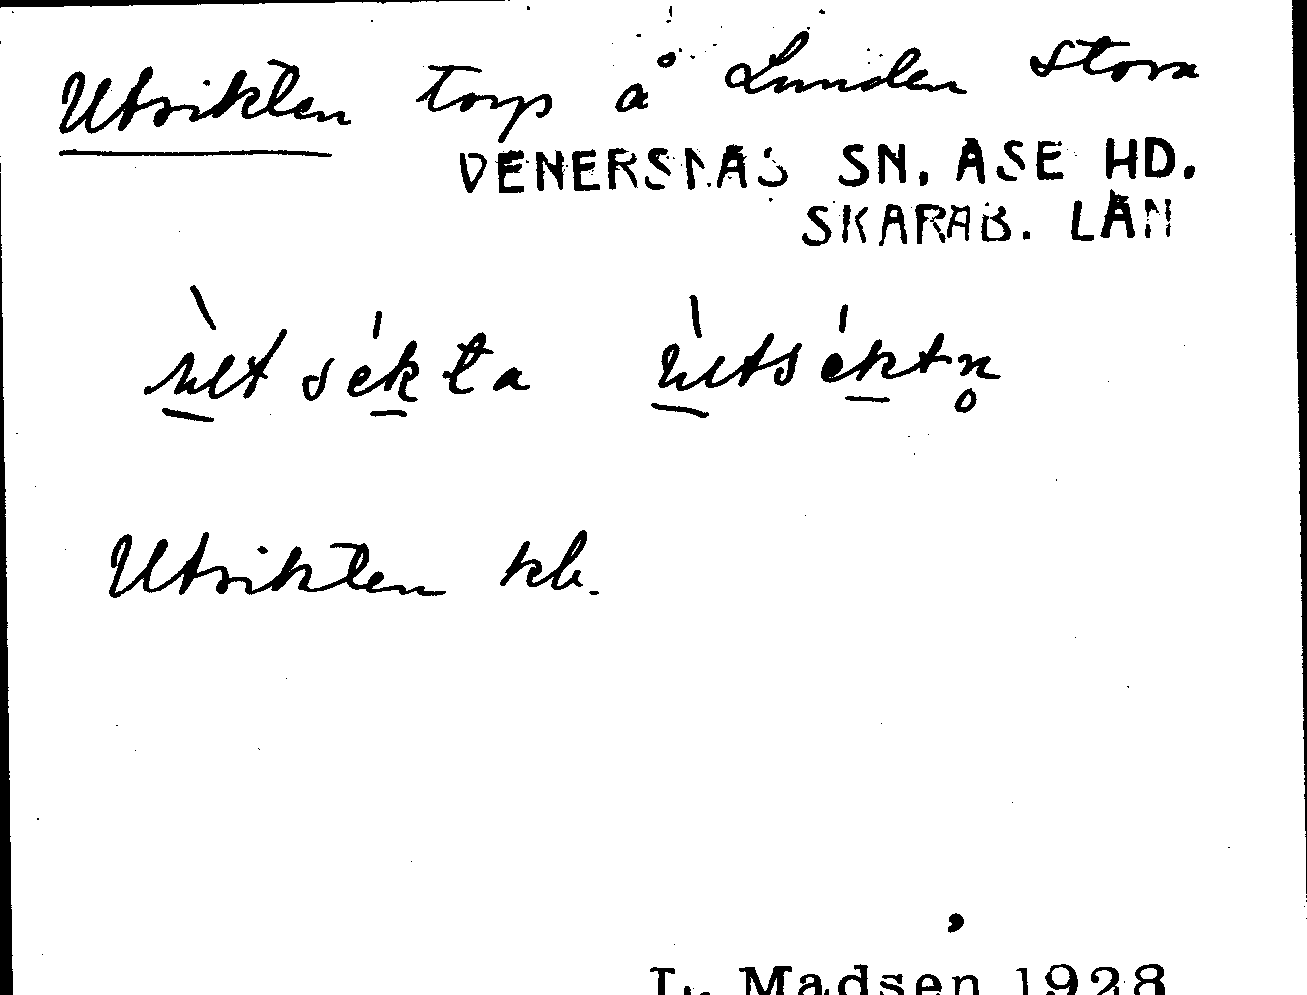 Utsikten torp å Lunden Stora
VENERSNÄS SN. ÅSE HD.
SKARAB. LÄN
ùtsékta ùtséktn̥
Utsikten kb.
L. Madsen 1928